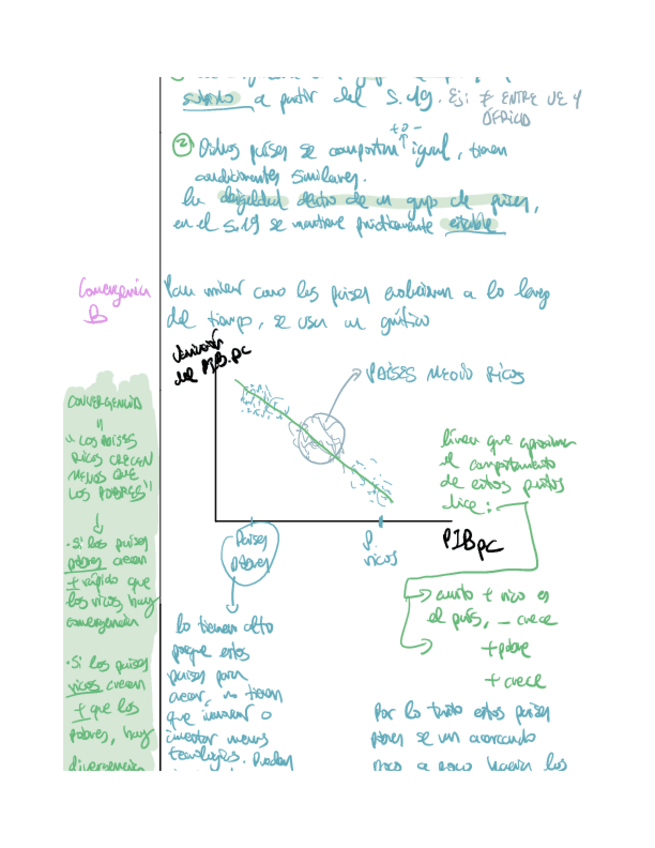 subido a partir del S.19. Ej: ≠ ENTRE UE Y
ÁFRICA
+ o -
② Dichos países se comportan ↑ igual, tienen
condicionantes similares.
La desigualdad dentro de un grupo de países,
en el S.19 se mantiene prácticamente estable
Convergencia
B
Para mirar como los países evolucionan a lo largo
del tiempo, se usa un gráfico
Variación
del PIB.pc
PAÍSES MEDIO RICOS
CONVERGENCIA
"
"LOS PAÍSES
RICOS CRECEN
MENOS QUE
LOS POBRES"
↓
· Si los países
pobres crecen
+ rápido que
los ricos, hay
convergencia
· Si los países
ricos crecen
+ que los
pobres, hay
divergencia
línea que aproxima
el comportamiento
de estos puntos
dice:
Países
pobres
P.
ricos
PIBpc
→ cuanto + rico es
el país, - crece
→ + pobre
+ crece
lo tienen alto
porque estos
países para
crecer, no tienen
que innovar o
inventar nuevas
tecnologías. Pueden
Por lo tanto estos países
pobres se van acercando
poco a poco hacia los